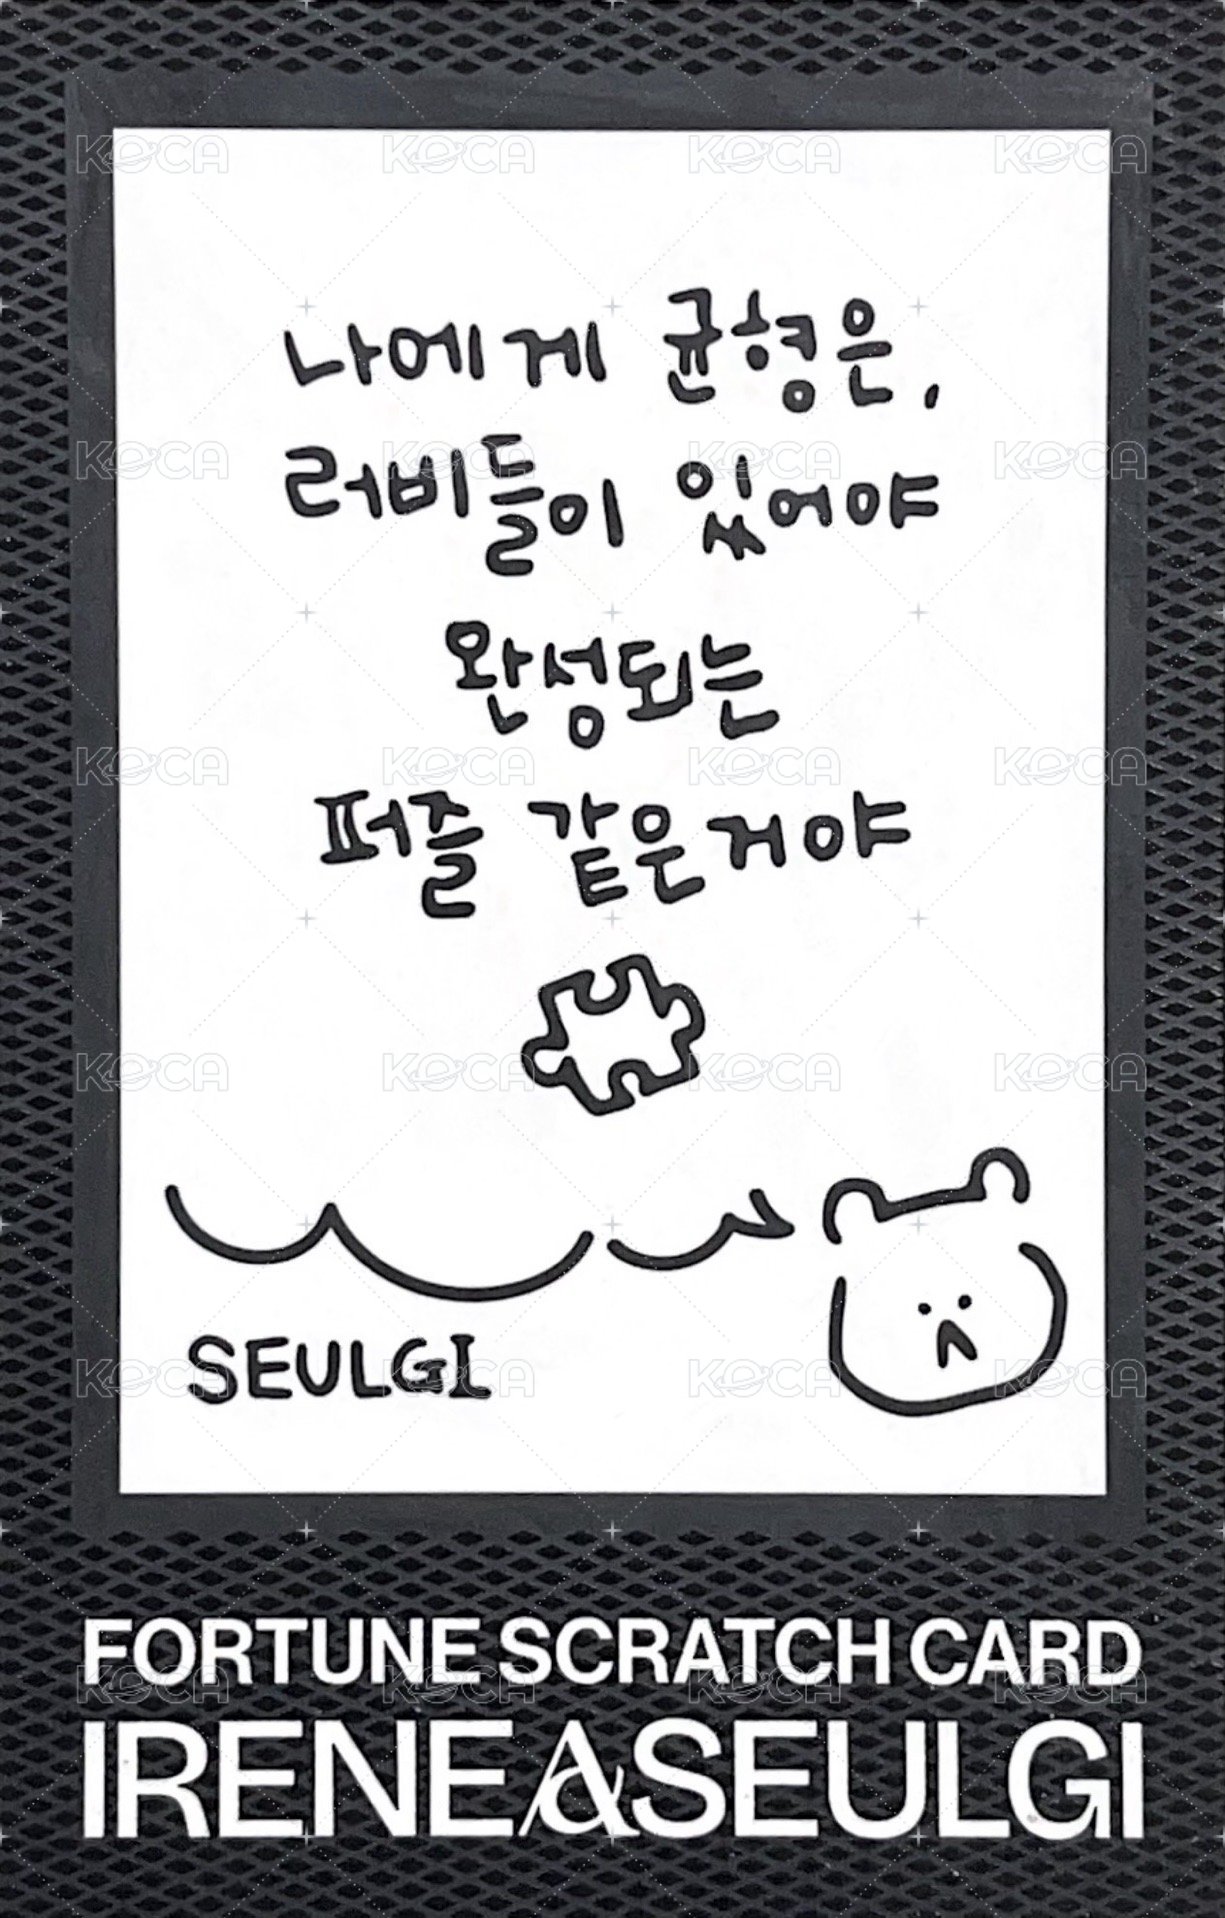 나에게 균형은,
러비들이 있어야
완성되는
퍼즐 같은거야
SEULGI
FORTUNE SCRATCH CARD
IRENE&SEULGI
KOCA